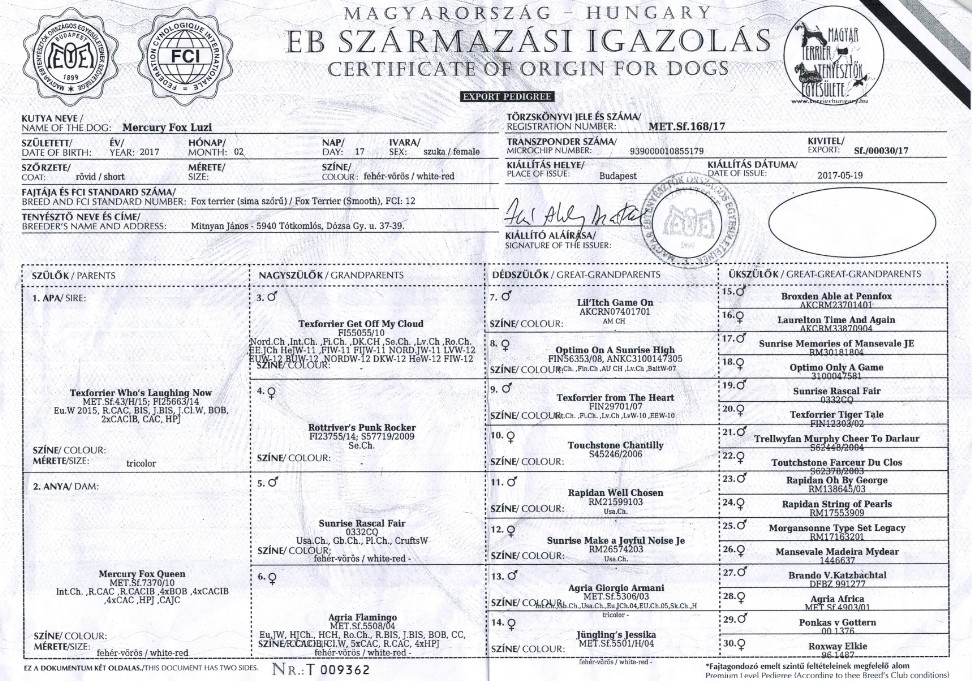 MAGYARORSZÁG – HUNGARY
EB SZÁRMAZÁSI IGAZOLÁS
CERTIFICATE OF ORIGIN FOR DOGS
EXPORT PEDIGREE
BUDAPEST
1899
FEDERATION CYNOLOGIQUE INTERNATIONALE
FCI
MAGYAR
TERRIER
TENYÉSZTŐK
EGYESÜLETE
www.terrierhungary.hu
KUTYA NEVE /
NAME OF THE DOG: Mercury Fox Luzi
TÖRZSKÖNYVI JELE ÉS SZÁMA/
REGISTRATION NUMBER: MET.Sf.168/17
SZÜLETETT/ ÉV/ HÓNAP/ NAP/ IVARA/
DATE OF BIRTH: YEAR: 2017 MONTH: 02 DAY: 17 SEX: szuka / female
TRANSZPONDER SZÁMA/ KIVITEL/
MICROCHIP NUMBER: 939000010855179 EXPORT: Sf./00030/17
SZŐRZETE/ MÉRETE/ SZÍNE/
COAT: rövid / short SIZE: COLOUR: fehér-vörös / white-red
KIÁLLÍTÁS HELYE/ KIÁLLÍTÁS DÁTUMA/
PLACE OF ISSUE: Budapest DATE OF ISSUE: 2017-05-19
FAJTÁJA ÉS FCI STANDARD SZÁMA/
BREED AND FCI STANDARD NUMBER: Fox terrier (sima szőrű) / Fox Terrier (Smooth), FCI: 12
TENYÉSZTŐ NEVE ÉS CÍME/
BREEDER'S NAME AND ADDRESS: Mitnyan János - 5940 Tótkomlós, Dózsa Gy. u. 37-39.
KIÁLLÍTÓ ALÁÍRÁSA/
SIGNATURE OF THE ISSUER:
SZÜLŐK / PARENTS
1. APA/ SIRE:
Texforrier Who's Laughing Now
MET.Sf.43/H/15; FI25663/14
Eu.W 2015, R.CAC, BIS, J.BIS, J.CI.W, BOB,
2xCACIB, CAC, HPJ
SZÍNE/ COLOUR:
MÉRETE/SIZE: tricolor
2. ANYA/ DAM:
Mercury Fox Queen
MET.Sf.7370/10
Int.Ch. ,R.CAC ,R.CACIB ,4xBOB ,4xCACIB
,4xCAC ,HPJ ,CAJC
SZÍNE/ COLOUR:
MÉRETE/SIZE: fehér-vörös / white-red
NAGYSZÜLŐK / GRANDPARENTS
3. ♂
Texforrier Get Off My Cloud
FI55055/10
Nord.Ch ,Int.Ch. ,Fi.Ch. ,DK.CH ,Se.Ch. ,Lv.Ch ,Ro.Ch.
EE.JCh HeJW-11 ,FIW-11 FIJW-11 NORD.JW-11 LVW-12
EUW-12 BUW-12 ,NORDW-12 DKW-12 HeW-12 FIW-12
SZÍNE/ COLOUR: -
4. ♀
Rottriver's Punk Rocker
FI23755/14; S57719/2009
Se.Ch.
SZÍNE/ COLOUR: -
5. ♂
Sunrise Rascal Fair
0332CQ
Usa.Ch., Gb.Ch., Pl.Ch., CruftsW
SZÍNE/ COLOUR:
fehér-vörös / white-red -
6. ♀
Agria Flamingo
MET.Sf.5508/04
Eu.JW, HJCh., HCH, Ro.Ch., R.BIS, J.BIS, BOB, CC,
SZÍNE/ COLOUR: 5xCAC, R.CAC, 4xHPJ
fehér-vörös / white-red -
DÉDSZÜLŐK / GREAT-GRANDPARENTS
7. ♂
Lil'Itch Game On
AKCRN07401701
SZÍNE/ COLOUR: AM CH
8. ♀
Optimo On A Sunrise High
FIN56353/08, ANKC3100147305
SZÍNE/ COLOUR: ,Fin.Ch., AU CH ,Lv.Ch ,BaltW-07
9. ♂
Texforrier from The Heart
FIN29701/07
SZÍNE/ COLOUR: ,Fi.Ch. ,Lv.Ch ,LvW-10 ,EEW-10
10. ♀
Touchstone Chantilly
S45246/2006
SZÍNE/ COLOUR:
11. ♂
Rapidan Well Chosen
RM21599103
SZÍNE/ COLOUR: Usa.Ch.
12. ♀
Sunrise Make a Joyful Noise Je
RM26574203
SZÍNE/ COLOUR: Usa.Ch.
13. ♂
Agria Giorgio Armani
MET.Sf.5306/03
SZÍNE/ COLOUR: ,Usa.Ch., Eu.JCh.04, EU.Ch.05, Sk.Ch.
tricolor -
14. ♀
Jüngling's Jessika
MET.Sf.5501/H/04
SZÍNE/ COLOUR:
fehér-vörös / white-red -
ÜKSZÜLŐK / GREAT-GREAT-GRANDPARENTS
15. ♂ Broxden Able at Pennfox
AKCRM23701401
16. ♀ Laurelton Time And Again
AKCRM33870904
17. ♂ Sunrise Memories of Mansevale JE
RM30181804
18. ♀ Optimo Only A Game
3100047581
19. ♂ Sunrise Rascal Fair
0332CQ
20. ♀ Texforrier Tiger Tale
FIN12303/02
21. ♂ Trellwyfan Murphy Cheer To Darlaur
S62448/2004
22. ♀ Toutchstone Farceur Du Clos
S62378/2003
23. ♂ Rapidan Oh By George
RM138645/03
24. ♀ Rapidan String of Pearls
RM17553909
25. ♂ Morgansonne Type Set Legacy
RM17163201
26. ♀ Mansevale Madeira Mydear
1446637
27. ♂ Brando V.Katzbachtal
DFBZ 991277
28. ♀ Agria Africa
MET.Sf.4903/01
29. ♂ Ponkas v Gottern
00 1376
30. ♀ Roxway Elkie
96 1487
EZ A DOKUMENTUM KÉT OLDALAS./THIS DOCUMENT HAS TWO SIDES. NR.: T 009362
*Fajtagondozó emelt szintű feltételeinek megfelelő alom
Premium Level Pedigree (According to thee Breed's Club conditions)